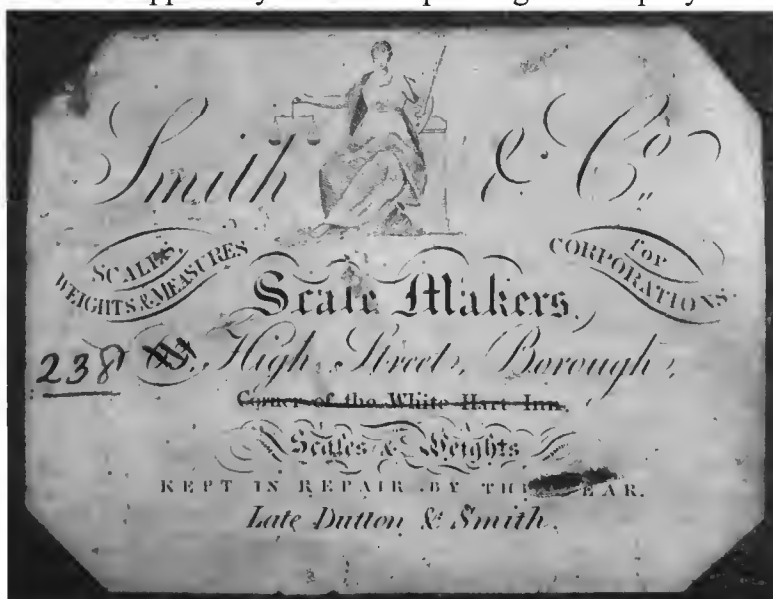 Smith & Co.
SCALES,
WEIGHTS & MEASURES
for
CORPORATIONS.
Scale Makers,
238 High Street, Borough,
Corner of the White Hart Inn.
Scales & Weights
KEPT IN REPAIR BY THE YEAR.
Late Dutton & Smith.